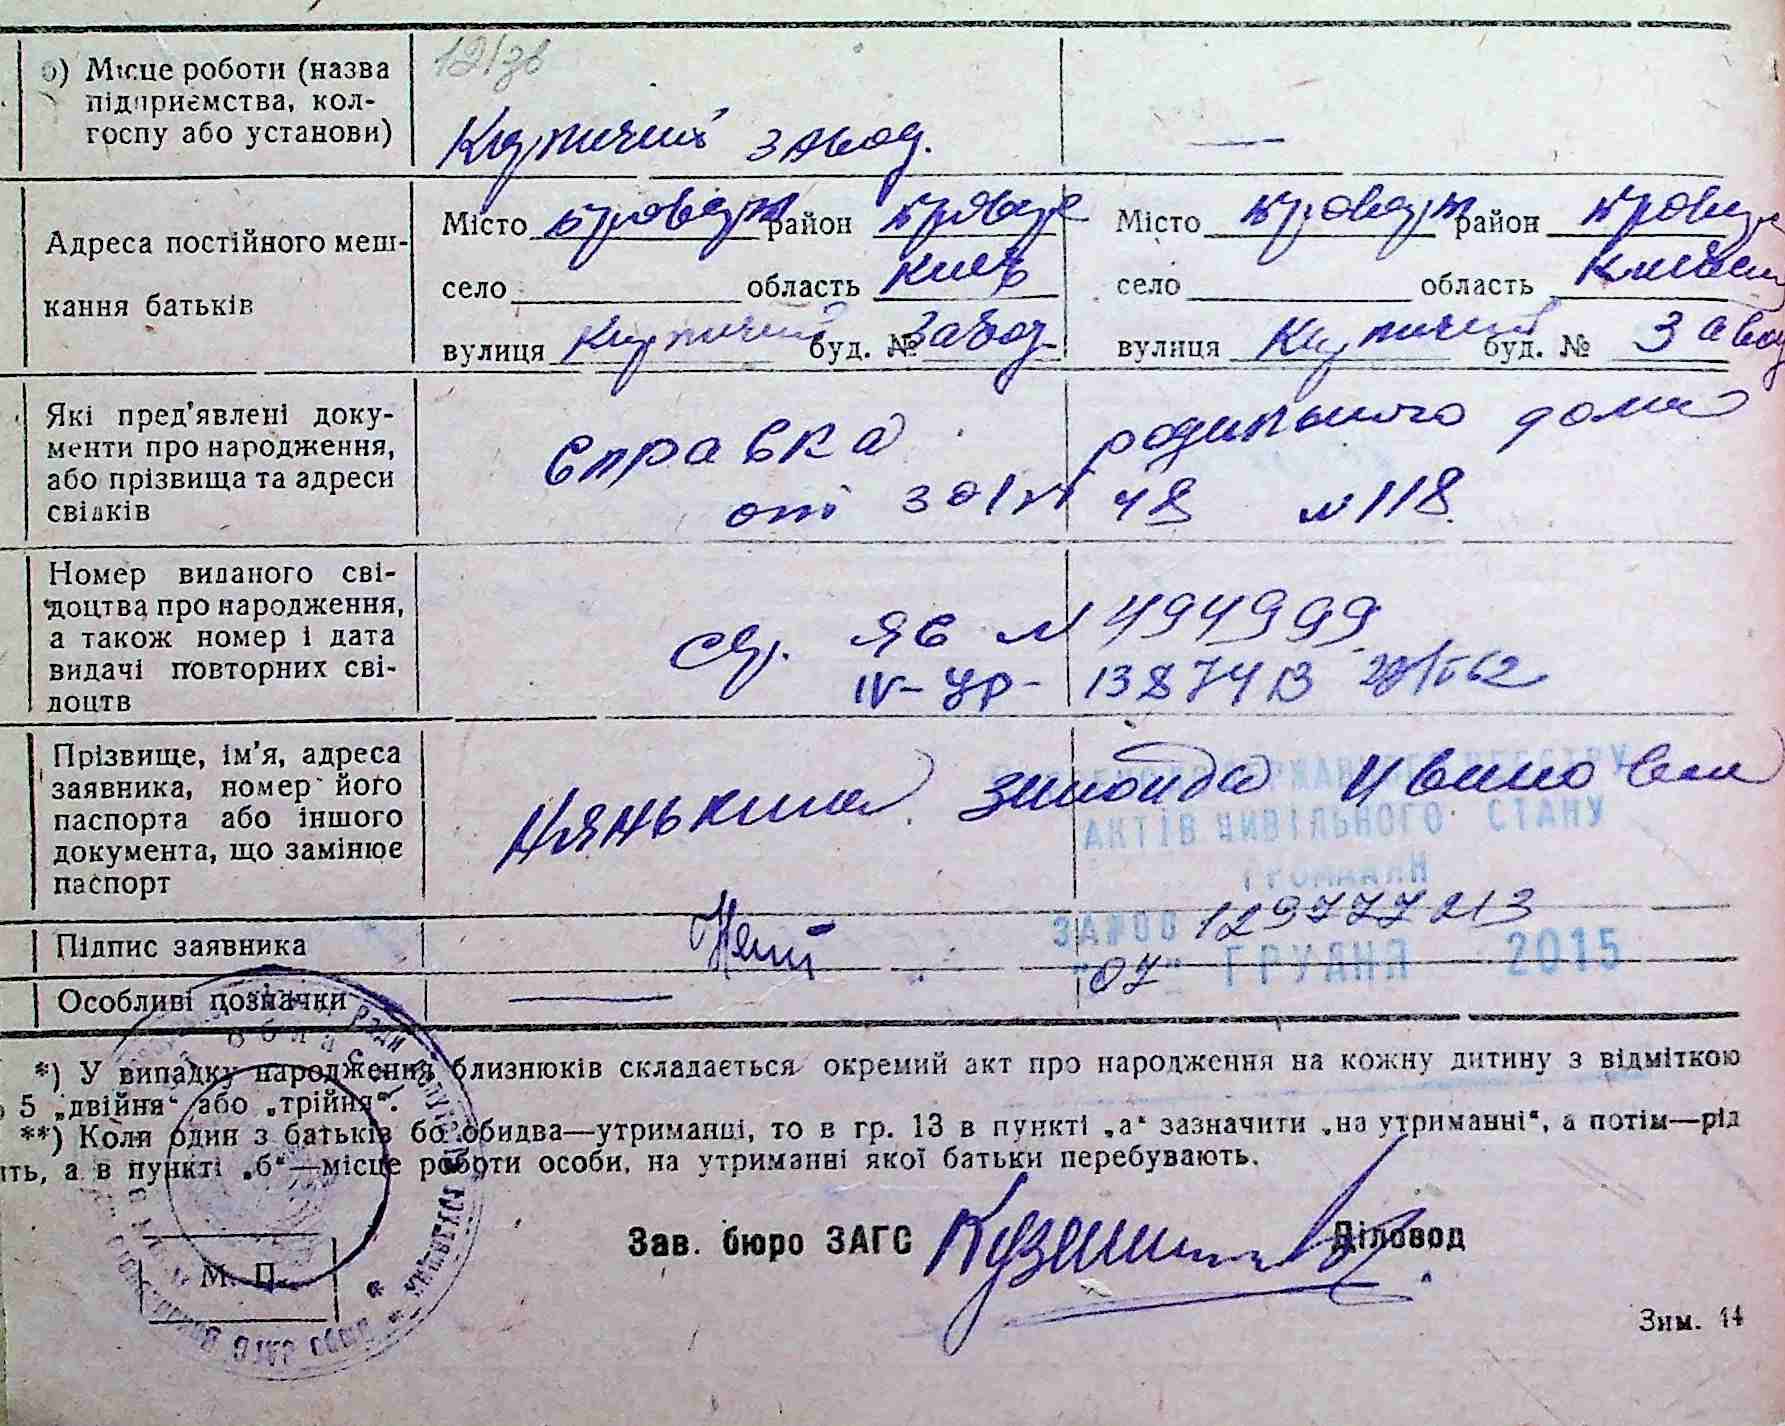 б) Місце роботи (назва
підприємства, кол-
госпу або установи)
Кирпичний завод.
Адреса постійного меш-
кання батьків
Місто Бровары район Бровар
село область Киев
вулиця Кирпичний буд. № Завод
Місто Бровары район Бровар
село область Киевск
вулиця Кирпичний буд. № Завод
Які пред'явлені доку-
менти про народження,
або прізвища та адреси
свідків
Справка родильного дома
от 30/IV 48 № 118.
Номер виданого сві-
доцтва про народження,
а також номер і дата
видачі повторних сві-
доцтв
ЯБ № 494999
IV-УР- 13874
Прізвище, ім'я, адреса
заявника, номер його
паспорта або іншого
документа, що замінює
паспорт
Нянькина Зинаида Ивановна
ДЕРЖАВНОГО РЕЄСТРУ
АКТІВ ЦИВІЛЬНОГО СТАНУ
ГРОМАДЯН
Підпис заявника
129777213
"07" ГРУДНЯ 2015
Особливі позначки
*) У випадку народження близнюків складається окремий акт про народження на кожну дитину з відміткою
5 „двійня“ або „трійня“.
**) Коли один з батьків бо обидва—утриманці, то в гр. 13 в пункті „а“ зазначити „на утриманні“, а потім—рід
ть, а в пункті „б“—місце роботи особи, на утриманні якої батьки перебувають.
Зав. бюро ЗАГС
Діловод
М. П.
Зим. 14